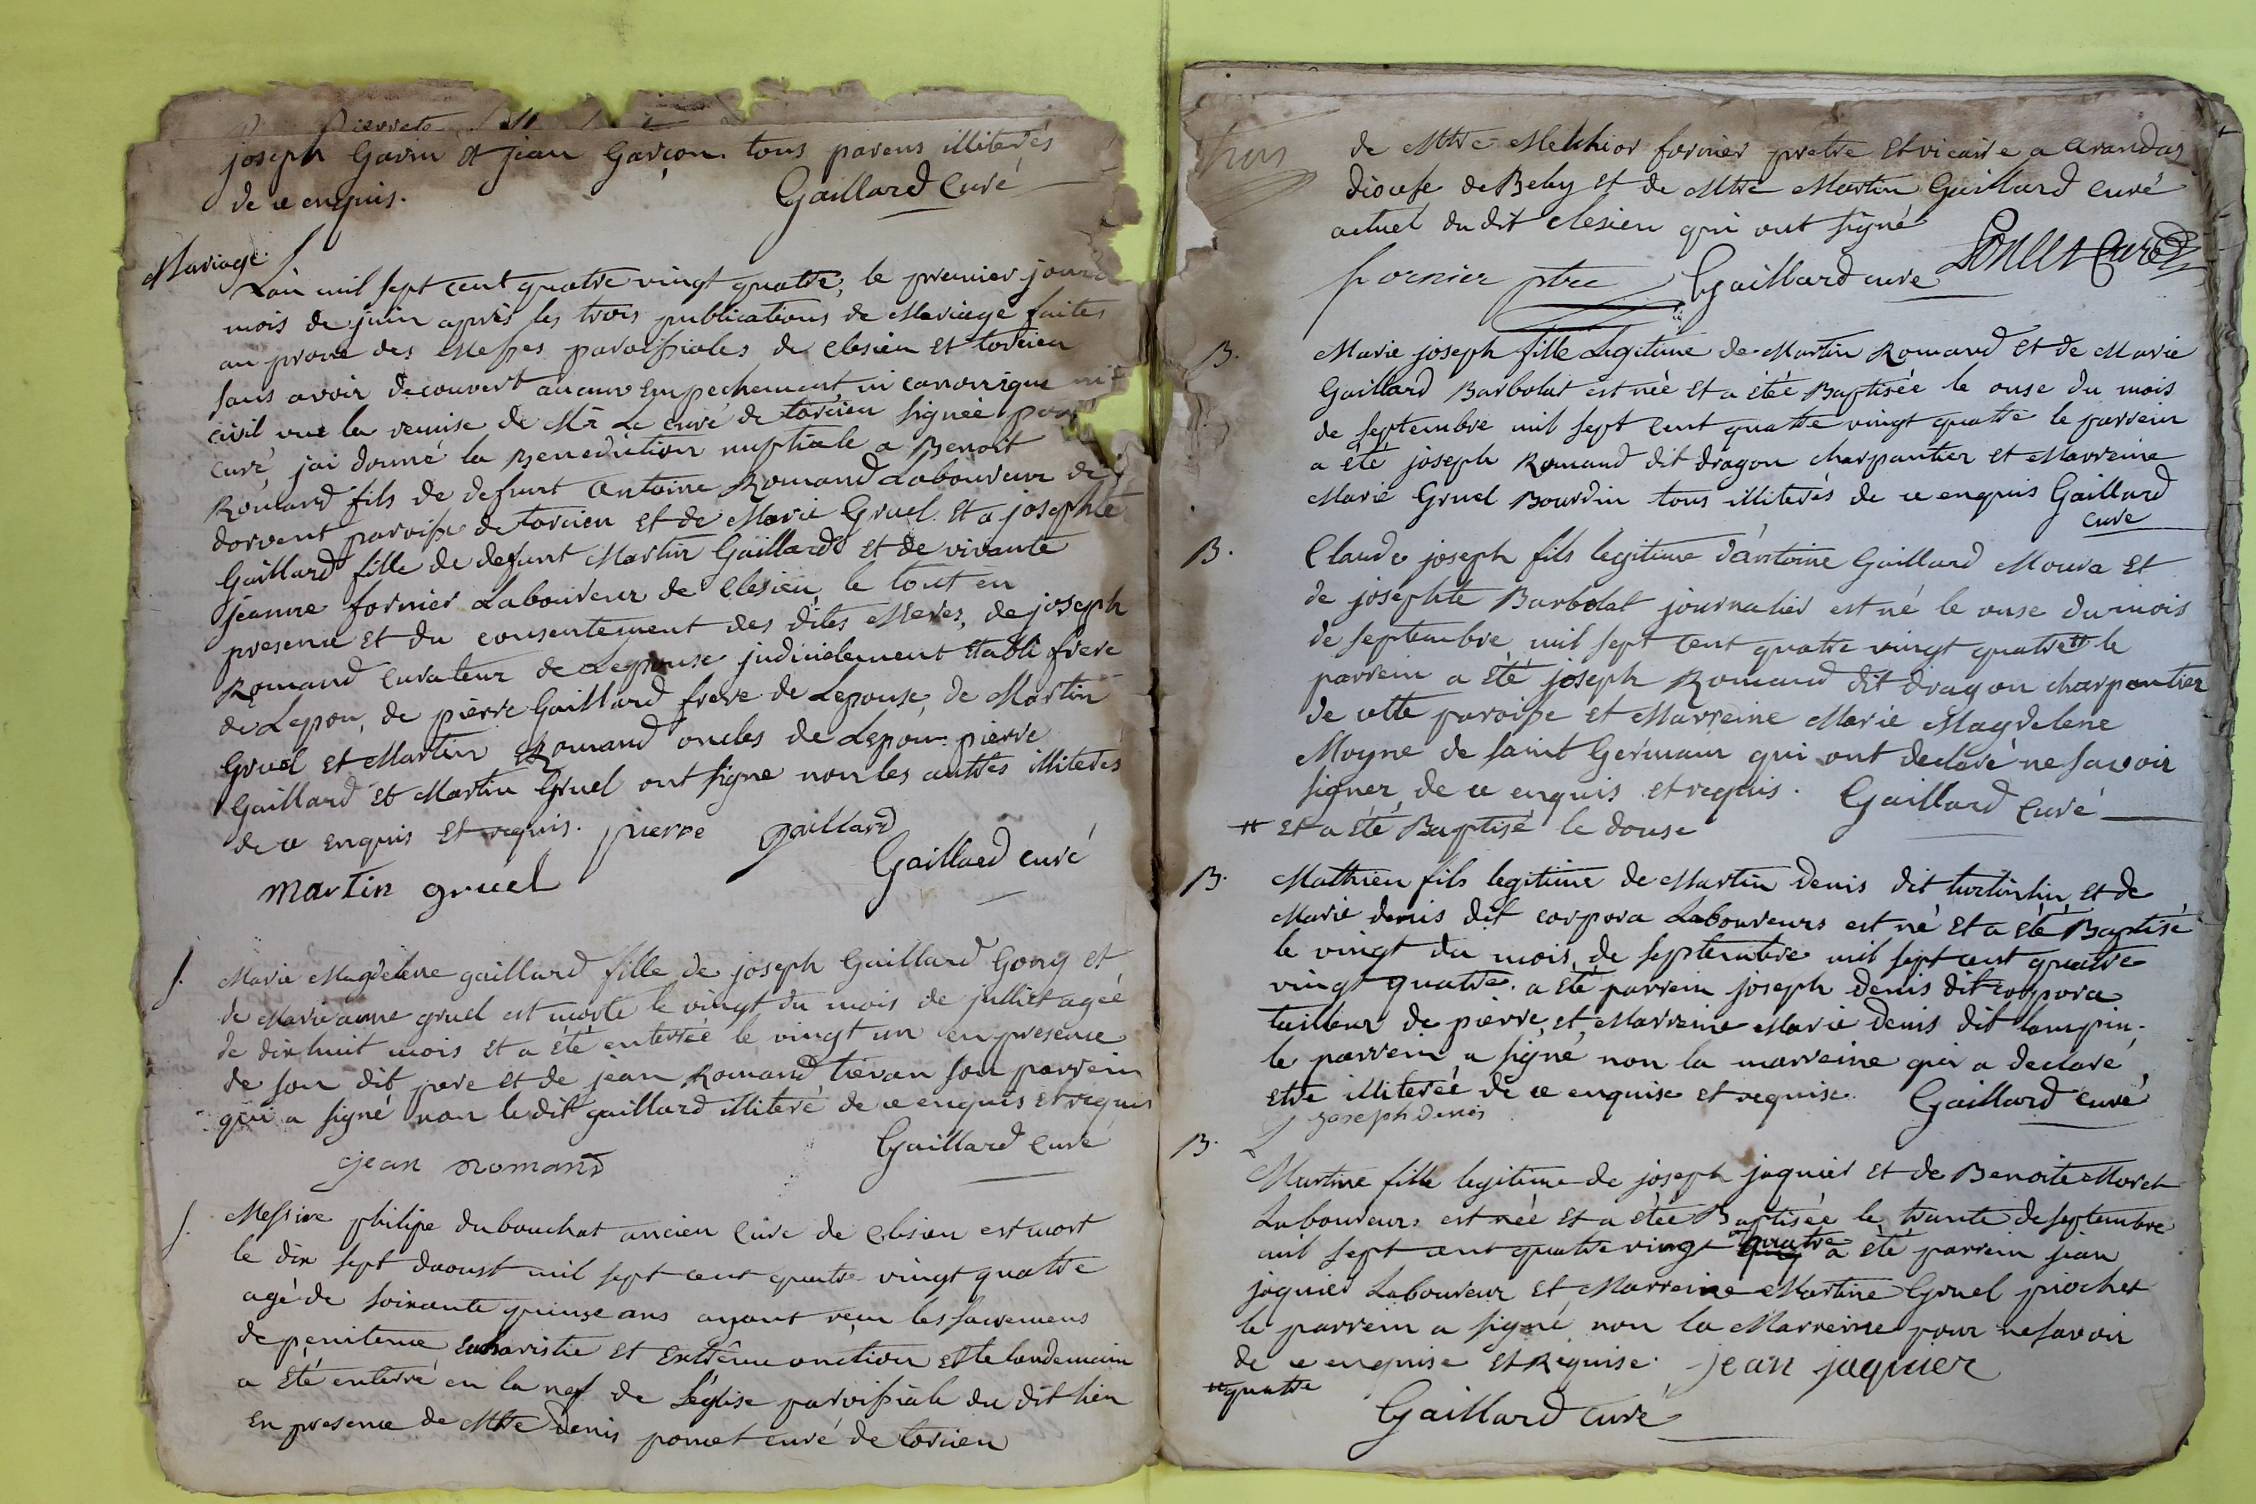 pierrete
joseph Gavin et jean Garçon tous parens illiterés
de ce enquis. Gaillard curé
Mariage.
Lan mil sept cent quatre vingt quatre, le premier jour
mois de juin apres les trois publications de Mariage faites
au prone des Messes paroissiales de clesieu et torcieu
sans avoir decouvert aucun empechement ni canonique ni
civil vue la remise de Mr Le curé de torcieu signée
curé, jai donné la Benediction nuptiale a Benoit
Romand fils de defunt antoine Romand Laboureur de
dorvent paroisse de torcieu et de Marie Gruel. Et a josephte
Gaillard fille de defunt Martin Gaillard et de vivante
jeanne fornier Laboureur de Clesieu, le tout en
presence et du consentement des dites Meres, de joseph
Romand curateur de Lepouse judicielement etabli frere
de Lepou, de pierre Gaillard frere de Lepouse, de Martin
Gruel et Martin Romand oncles de Lepou. pierre
Gaillard et Martin Gruel ont signe non les autres illiterés
de ce enquis et requis. pierre gaillard
martin gruel Gaillard curé
S. Marie Magdelene gaillard fille de joseph Gaillard Gony et
de Marie anne gruel est morte le vingt du mois de julliet ageé
de dix huit mois et a été enterrée le vingt un en presence
de son dit pere et de jean Romand tievan son parrein
qui a signé non le dit gaillard illiteré de ce enquis et requis
jean romand Gaillard curé
S. Messire philipe dubouchat ancien curé de Clesieu est mort
le dix sept daoust mil sept cent quatre vingt quatre
agé de soixante quinze ans ayant reçu les sacremens
de penitence eucharistie et extrême onction et le landemain
a été enterré en la nef de L'église paroissiale du dit lieu
En presence de Mtre denis poncet curé de torcieu
de Mtre Melchior fornier pretre et vicaire a arandas
diocese de Beley et de Mtre Martin Gaillard curé
actuel du dit clesieu qui ont signé
fornier ptre Gaillard curé Poncet Curé
B. Marie joseph fille Legitime de Martin Romand et de Marie
Gaillard Barbolat est née et a été Baptisée le onse du mois
de septembre mil sept cent quatre vingt quatre le parrein
a été joseph Romand dit dragon charpantier et Marreine
Marie Gruel Bourdin tous illiterés de ce enquis Gaillard
curé
B. Claude joseph fils legitime d'antoine Gaillard Moura et
de josephte Barbolat journalier est né le onse du mois
de septembre mil sept cent quatre vingt quatre # le
parrein a été joseph Romand dit dragon charpantier
de cette paroisse et Marreine Marie Magdelene
Moyne de saint Germain qui ont declaré ne savoir
signer de ce enquis et requis. Gaillard Curé
# et a été Baptisé le douse
B. Mathieu fils legitime de Martin Denis dit turlinlin et de
Marie denis dit corpora Laboureurs est né et a été Baptisé
le vingt du mois de septembre mil sept cent quatre
vingt quatre. a été parrein joseph Denis dit corpora
tailleur de pierre, et Marreine Marie Denis dit lampin.
le parrein a signé non la marreine qui a declaré
etre illiterée de ce enquise et requise. Gaillard curé
joseph denis
B. Martine fille legitime de joseph jaquier et de Benoite Moret
Laboureurs est née et a étée Baptisée le trante de septembre
mil sept cent quatre vingt quatre a été parrein jean
jaquier Laboureur et Marreine Martine Gruel piochet
le parrein a signé non la Marreine pour ne savoir
de ce enquise et Requise. jean jaquier
# quatre
Gaillard curé